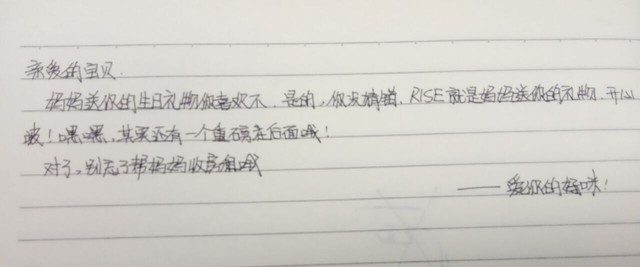 亲爱的宝贝.
妈妈送你的生日礼物你喜欢不.是的,你没猜错.RISE就是妈妈送你的礼物.开心
啵!嘿嘿,其实还有一个重磅在后面哦!
对了,别忘了帮妈妈收房租哦
——爱你的ማ